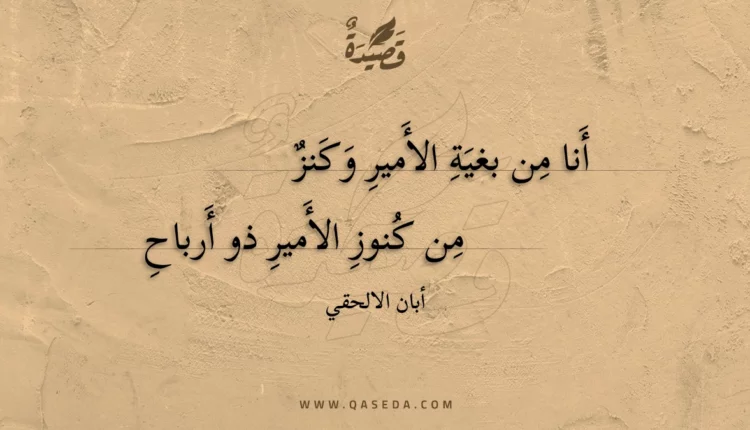 قَصِيدَةٌ
أَنا مِن بغيَةِ الأَميرِ وَكَنزٌ
مِن كُنوزِ الأَميرِ ذو أَرباحِ
أبان الالحقي
WWW.QASEDA.COM